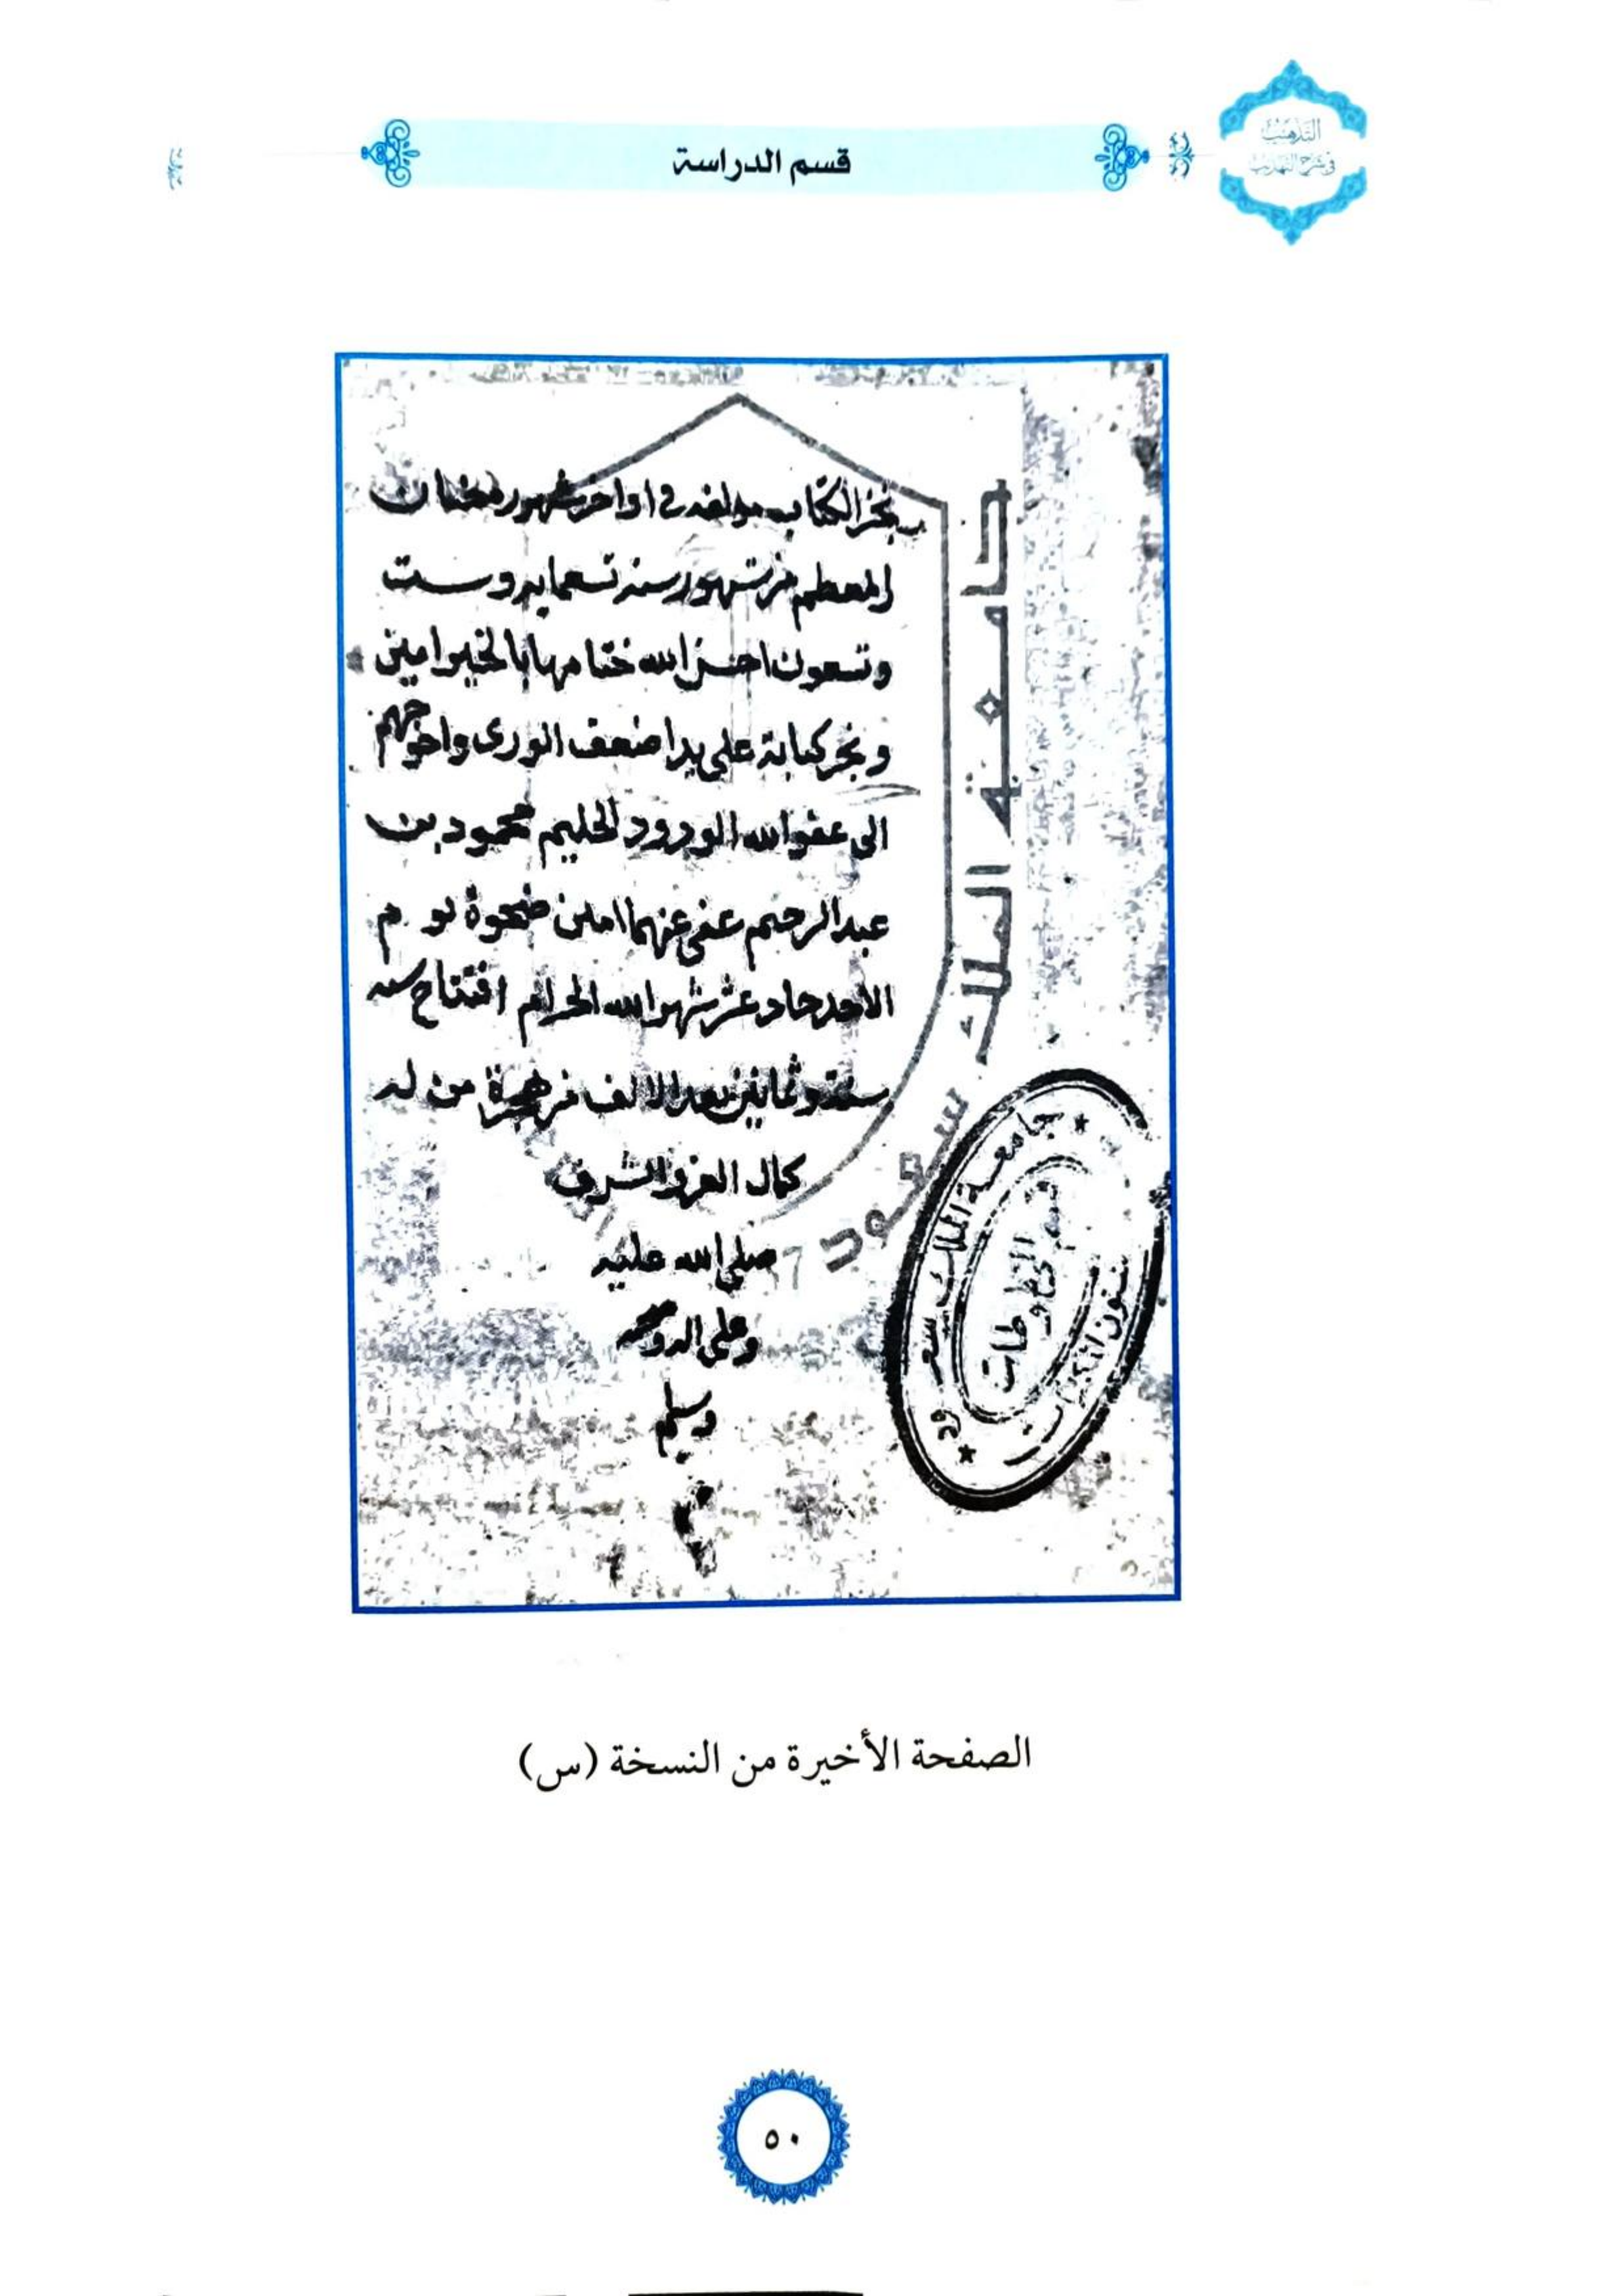 التذهيب
في شرح التهذيب
قسم الدراسة
نجز الكتاب مولفه في اواخر شهور رمضان
المعظم من شهور سنه تسعمايه وست
وتسعون احسن الله ختامها بالخير امين
ونجز كتابة على يد اضعف الورى واحوجهم
الى عفو الله الودود الحليم محمود بن
عبد الرحيم عفى عنهما امين ضحوة يوم
الاحد حاد عشر شهر الله الحرام افتتاح سنه
ستة وثمانين بعد الالف من هجرة من له
كمال العز والشرف
صلى الله عليه
وعلى اله وصحبه
وسلم
جامعة الملك سعود
جامعة الملك سعود
قسم المخطوطات
شئون المكتبات
الصفحة الأخيرة من النسخة (س)
٥٠